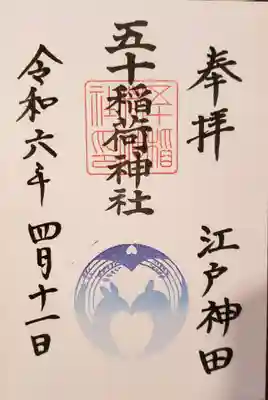 奉拝
江戸神田
五十稲荷神社
令和六年 四月十一日